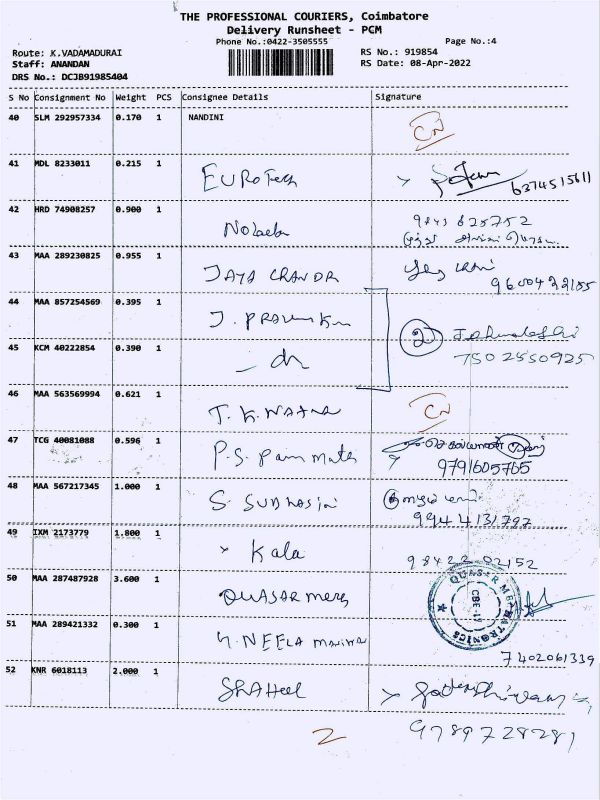 THE PROFESSIONAL COURIERS, Coimbatore
Delivery Runsheet - PCM
Phone No.:0422-3505555 Page No.:4
Route: K.VADAMADURAI RS No.: 919854
Staff: ANANDAN RS Date: 08-Apr-2022
DRS No.: DCJB91985404
S No Consignment No Weight PCS Consignee Details Signature
40 SLM 292957334 0.170 1 NANDINI CN
41 MDL 8233011 0.215 1
EUROTech 6374515611
42 HRD 74908257 0.900 1
9843 625752
43 MAA 289230825 0.955 1
JAYA CHANDR
9600422185
44 MAA 857254569 0.395 1
J. PRAVIN Km
2
45 KCM 40222854 0.390 1
7502550925
46 MAA 563569994 0.621 1
T.K. CN
47 TCG 40081088 0.596 1
P.S. 9791605765
48 MAA 567217345 1.000 1
S. SUBHASini
9944131797
49 IXM 2173779 1.800 1
Kala 98422 02152
50 MAA 287487928 3.600 1
QUASAR QUASAR MECHATRONICS
51 MAA 289421332 0.300 1
NEELA
7402061339
52 KNR 6018113 2.000 1
9789728281
2